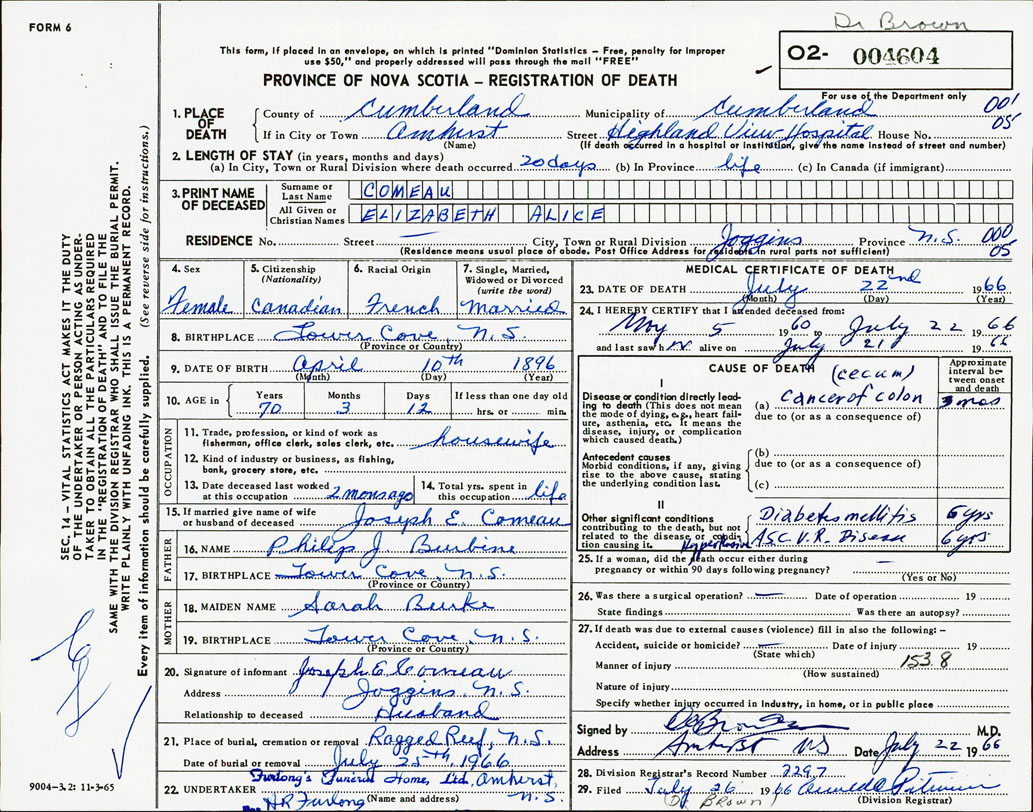 Dr Brown
FORM 6
This form, if placed in an envelope, on which is printed "Dominion Statistics – Free, penalty for improper
use $50," and properly addressed will pass through the mail "FREE"
02- 004604
PROVINCE OF NOVA SCOTIA – REGISTRATION OF DEATH
For use of the Department only
1. PLACE OF DEATH County of Cumberland Municipality of Cumberland 001
If in City or Town Amhirst Street Highland View Hospital House No. 05
(Name) (If death occurred in a hospital or institution, give the name instead of street and number)
2. LENGTH OF STAY (in years, months and days)
(a) In City, Town or Rural Division where death occurred 20 days (b) In Province life (c) In Canada (if immigrant)
3. PRINT NAME OF DECEASED
Surname or Last Name COMEAU
All Given or Christian Names ELIZABETH ALICE
RESIDENCE No. Street — City, Town or Rural Division Joggins Province N.S. 000
(Residence means usual place of abode. Post Office Address for residents in rural parts not sufficient) 05
SEC. 14 – VITAL STATISTICS ACT MAKES IT THE DUTY
OF THE UNDERTAKER OR PERSON ACTING AS UNDER-
TAKER TO OBTAIN ALL THE PARTICULARS REQUIRED
IN THE "REGISTRATION OF DEATH" AND TO FILE THE
SAME WITH THE DIVISION REGISTRAR WHO SHALL ISSUE THE BURIAL PERMIT.
WRITE PLAINLY WITH UNFADING INK. THIS IS A PERMANENT RECORD.
Every item of information should be carefully supplied. (See reverse side for instructions.)
4. Sex 5. Citizenship (Nationality) 6. Racial Origin 7. Single, Married, Widowed or Divorced (write the word)
Female Canadian French Married
8. BIRTHPLACE Tower Cove, N.S.
(Province or Country)
9. DATE OF BIRTH April 10th 1896
(Month) (Day) (Year)
10. AGE in Years Months Days If less than one day old
70 3 12 hrs. or min.
OCCUPATION
11. Trade, profession, or kind of work as
fisherman, office clerk, sales clerk, etc. housewife
12. Kind of industry or business, as fishing,
bank, grocery store, etc.
13. Date deceased last worked at this occupation 2 mons ago 14. Total yrs. spent in this occupation life
15. If married give name of wife
or husband of deceased Joseph E. Comeau
FATHER
16. NAME Philip J Burbine
17. BIRTHPLACE Tower Cove, N.S.
(Province or Country)
MOTHER
18. MAIDEN NAME Sarah Burke
19. BIRTHPLACE Tower Cove, N.S.
(Province or Country)
20. Signature of informant Joseph E Comeau
Address Joggins, N.S.
Relationship to deceased Husband
21. Place of burial, cremation or removal Ragged Reef, N.S.
Date of burial or removal July 25th, 1966
Furlong's Funeral Home, Ltd, Amherst,
22. UNDERTAKER HR Furlong N.S.
(Name and address)
9004-3.2: 11-3-65
MEDICAL CERTIFICATE OF DEATH
23. DATE OF DEATH July 22nd 1966
(Month) (Day) (Year)
24. I HEREBY CERTIFY that I attended deceased from:
May 5 1960 to July 22 1966
and last saw her alive on July 21 1966
CAUSE OF DEATH (cecum) Approximate interval between onset and death
I
Disease or condition directly leading to death (This does not mean the mode of dying, e.g., heart failure, asthenia, etc. It means the disease, injury, or complication which caused death.)
(a) Cancer of colon 3 mos
due to (or as a consequence of)
Antecedent causes
Morbid conditions, if any, giving rise to the above cause, stating the underlying condition last.
(b)
due to (or as a consequence of)
(c)
II
Other significant conditions contributing to the death, but not related to the disease or condition causing it.
Diabetes mellitis 6 yrs
Hypertension A.S.C.V.R. Disease 6 yrs
25. If a woman, did the death occur either during
pregnancy or within 90 days following pregnancy? —
(Yes or No)
26. Was there a surgical operation? — Date of operation 19
State findings Was there an autopsy?
27. If death was due to external causes (violence) fill in also the following: –
Accident, suicide or homicide? — Date of injury 19
(State which)
Manner of injury 153.8
(How sustained)
Nature of injury
Specify whether injury occurred in industry, in home, or in public place
Signed by M.D.
Address Amherst NS Date July 22 1966
28. Division Registrar's Record Number 2297
29. Filed July 26 1966
Dr BROWN (Division Registrar)